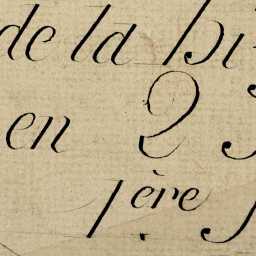 de la
en 2
1ère